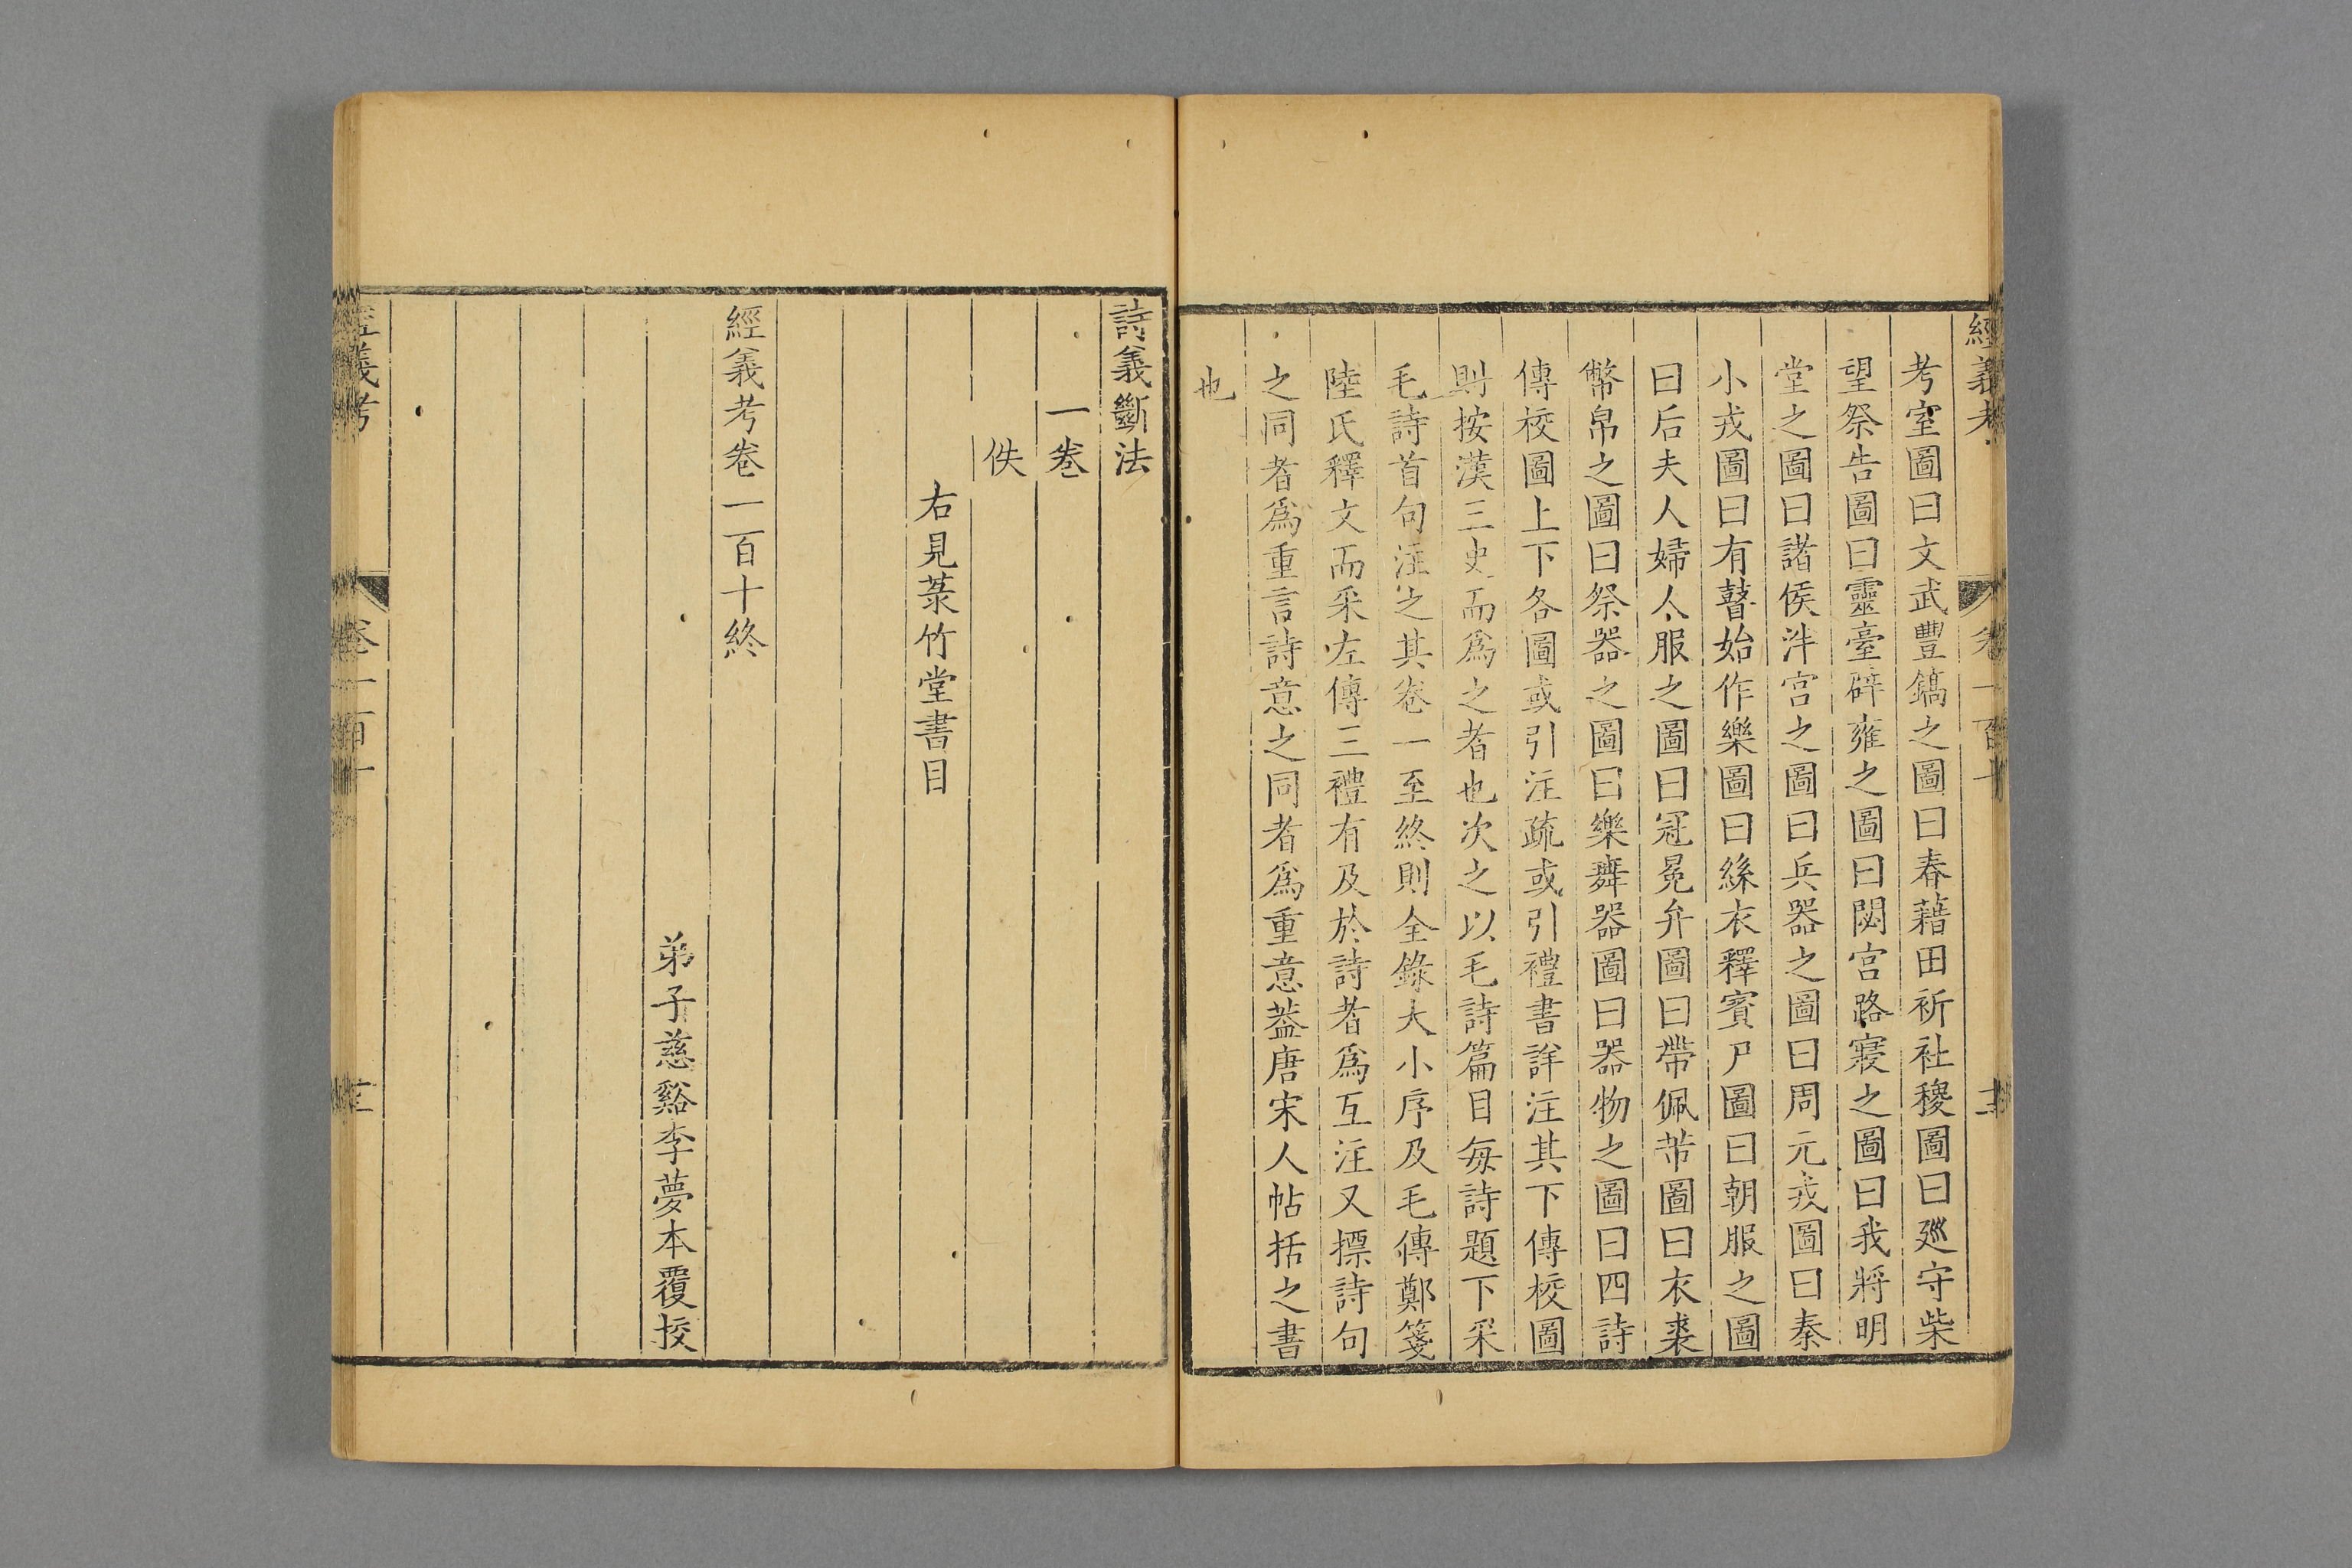 經義考 卷一百十
考室圖曰文武豐鎬之圖曰春藉田祈社稷圖曰廵守柴
望祭告圖曰靈臺辟雍之圖曰閟宮路寢之圖曰我將明
堂之圖曰諸侯泮宮之圖曰兵器之圖曰周元戎圖曰秦
小戎圖曰有瞽始作樂圖曰絲衣釋賓尸圖曰朝服之圖
曰后夫人婦人服之圖曰冠冕弁圖曰帶佩芾圖曰衣裘
幣帛之圖曰祭器之圖曰樂舞器圖曰器物之圖曰四詩
傳校圖上下各圖或引注疏或引禮書詳注其下傳校圖
則按漢三史而爲之者也次之以毛詩篇目每詩題下采
毛詩首句注之其卷一至終則全錄大小序及毛傳鄭箋
陸氏釋文而采左傳三禮有及於詩者爲互注又摽詩句
之同者爲重言詩意之同者爲重意葢唐宋人帖括之書
也
詩義斷法
一卷
佚
右見菉竹堂書目
經義考卷一百十終
弟子慈谿李夢本覆挍
經義考 卷一百十